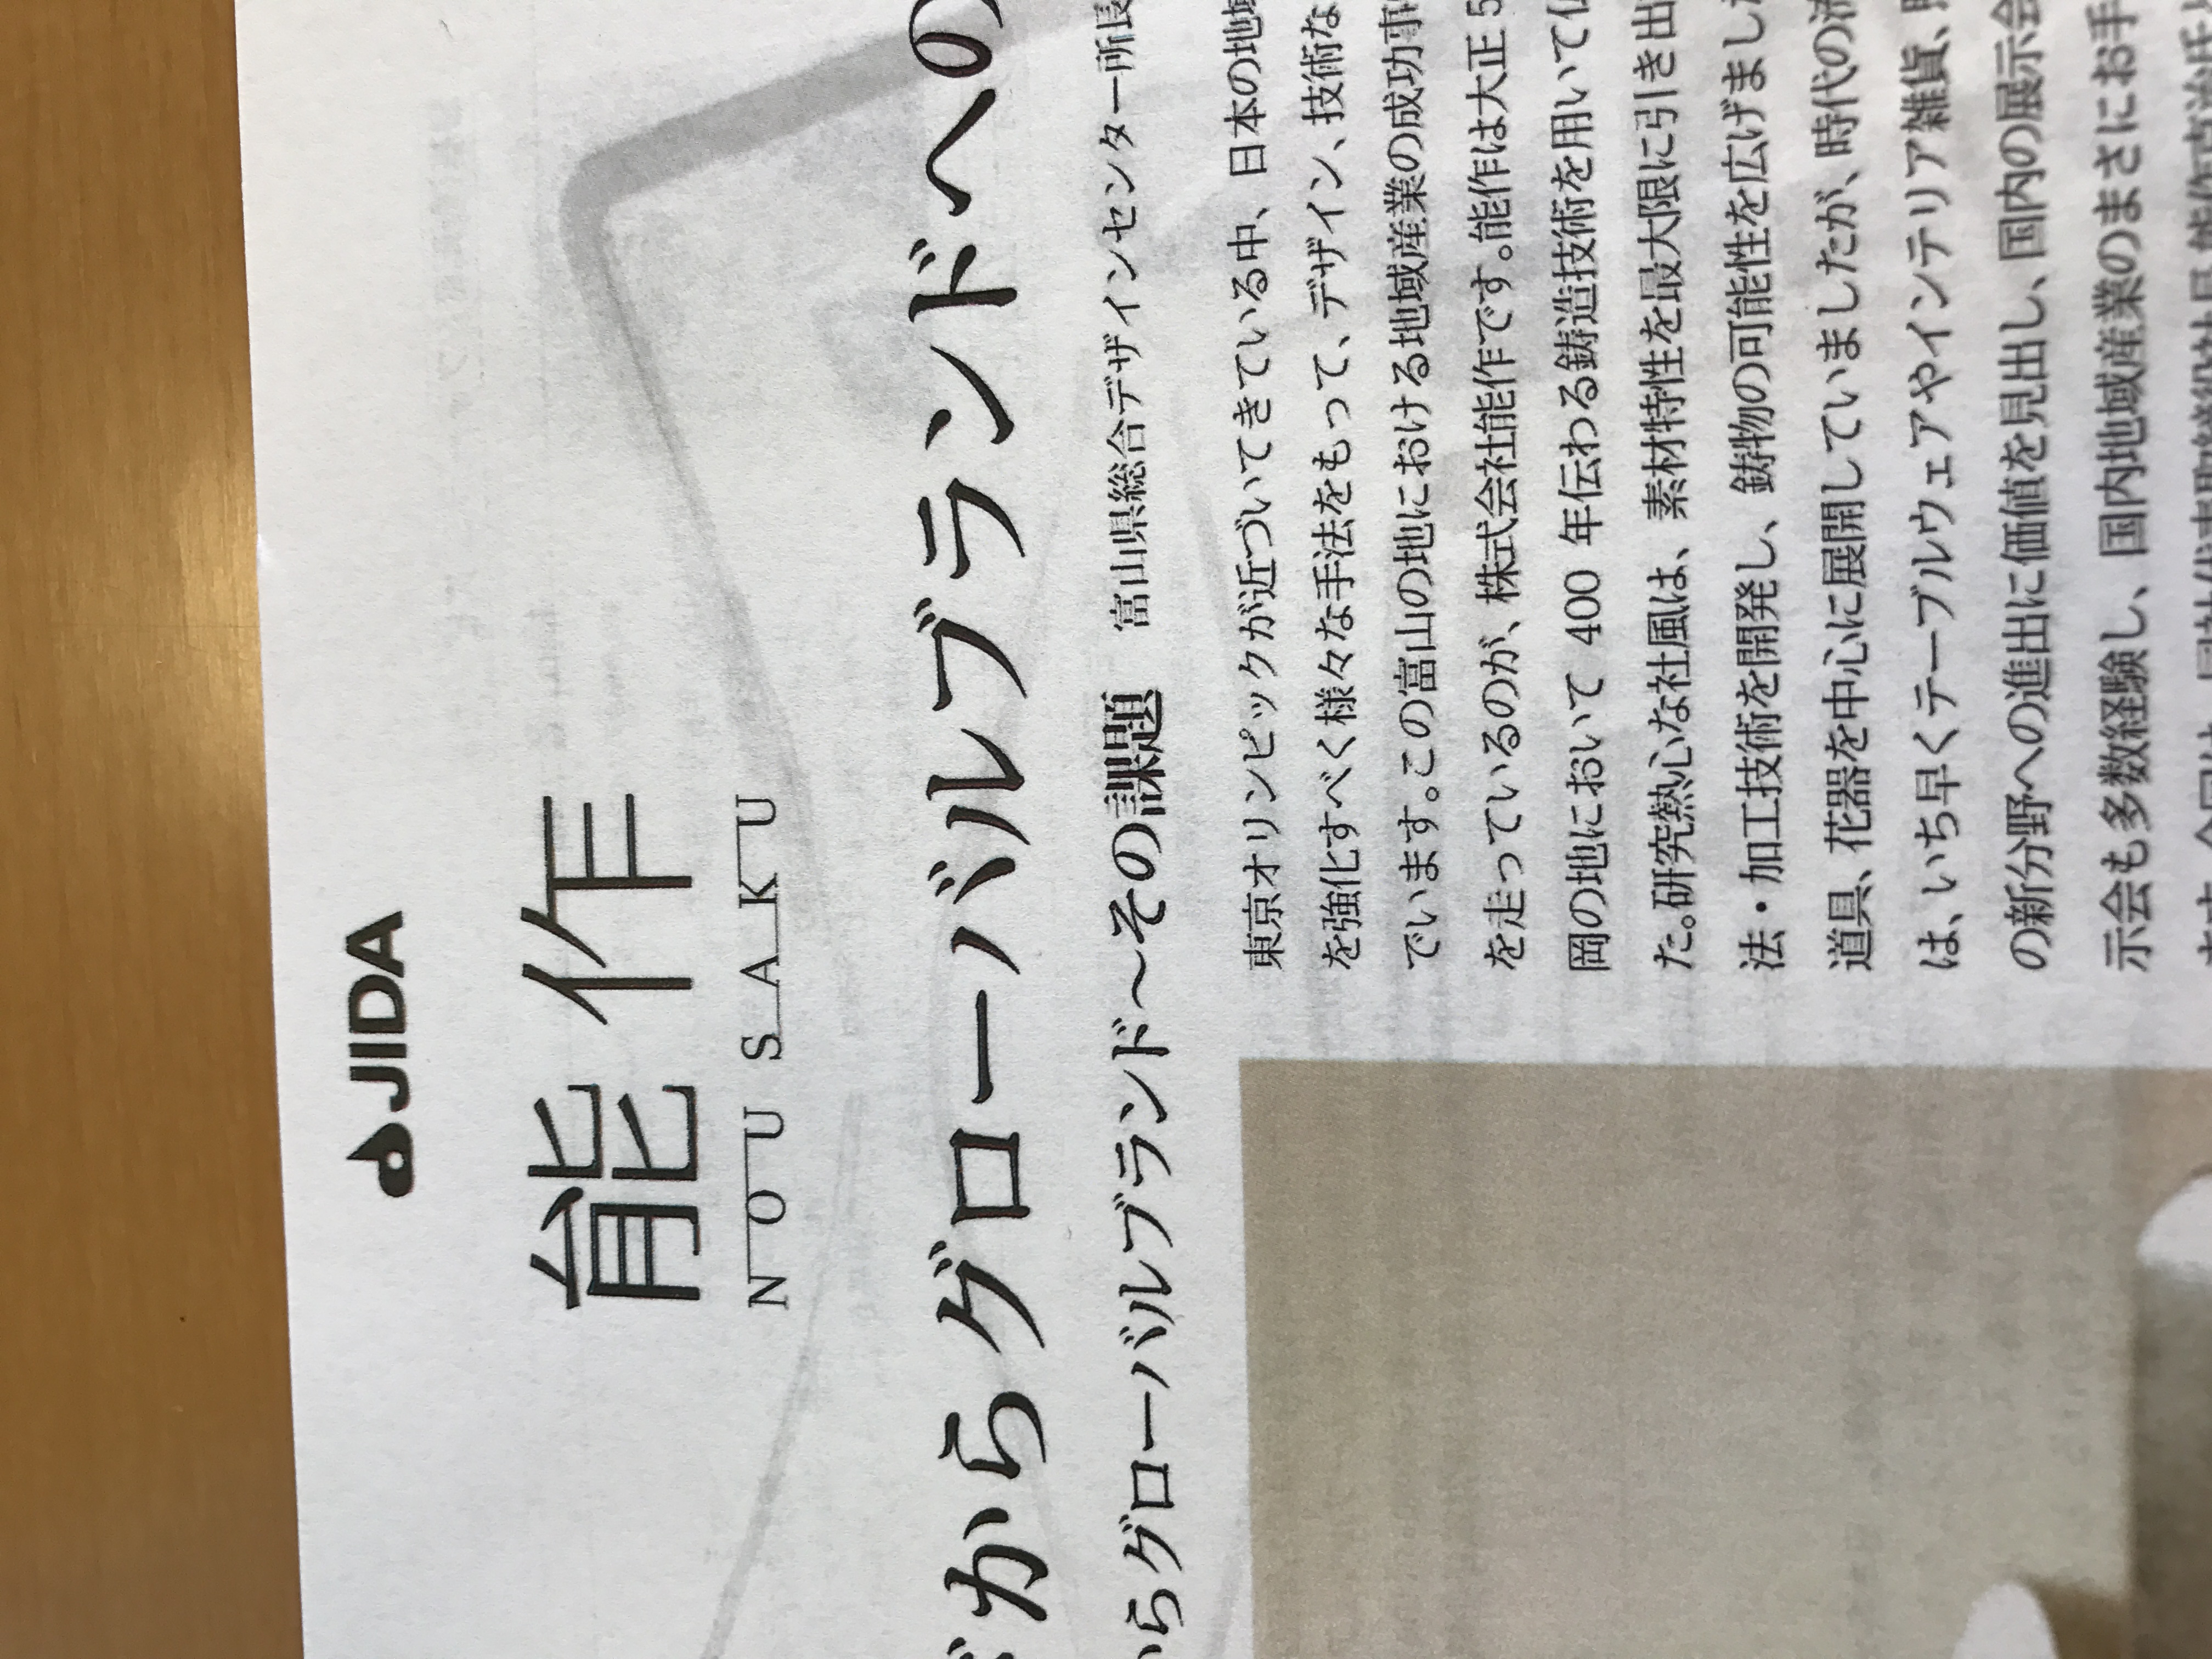 JIDA
能作
NOUSAKU
からグローバルブランドへの
らグローバルブランド〜その課題 富山県総合デザインセンター所長
東京オリンピックが近づいてきている中、日本の地域
を強化すべく様々な手法をもって、デザイン、技術な
でいます。この富山の地における地域産業の成功事
を走っているのが、株式会社能作です。能作は大正5
岡の地において 400 年伝わる鋳造技術を用いて仏
た。研究熱心な社風は、素材特性を最大限に引き出
法・加工技術を開発し、鋳物の可能性を広げました
道具、花器を中心に展開していましたが、時代の流
は、いち早くテーブルウェアやインテリア雑貨、照
の新分野への進出に価値を見出し、国内の展示会
示会も多数経験し、国内地域産業のまさにお手